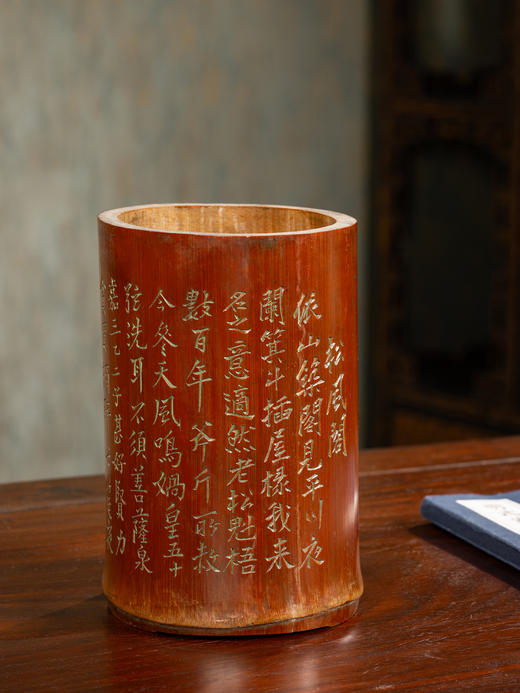 松風閣
依山築閣見平川夜
闌箕斗插屋椽我来
名之意適然老松魁梧
數百年斧斤所赦
今参天風鳴媧皇五十
弦洗耳不須菩薩泉
嘉二三子甚好賢力